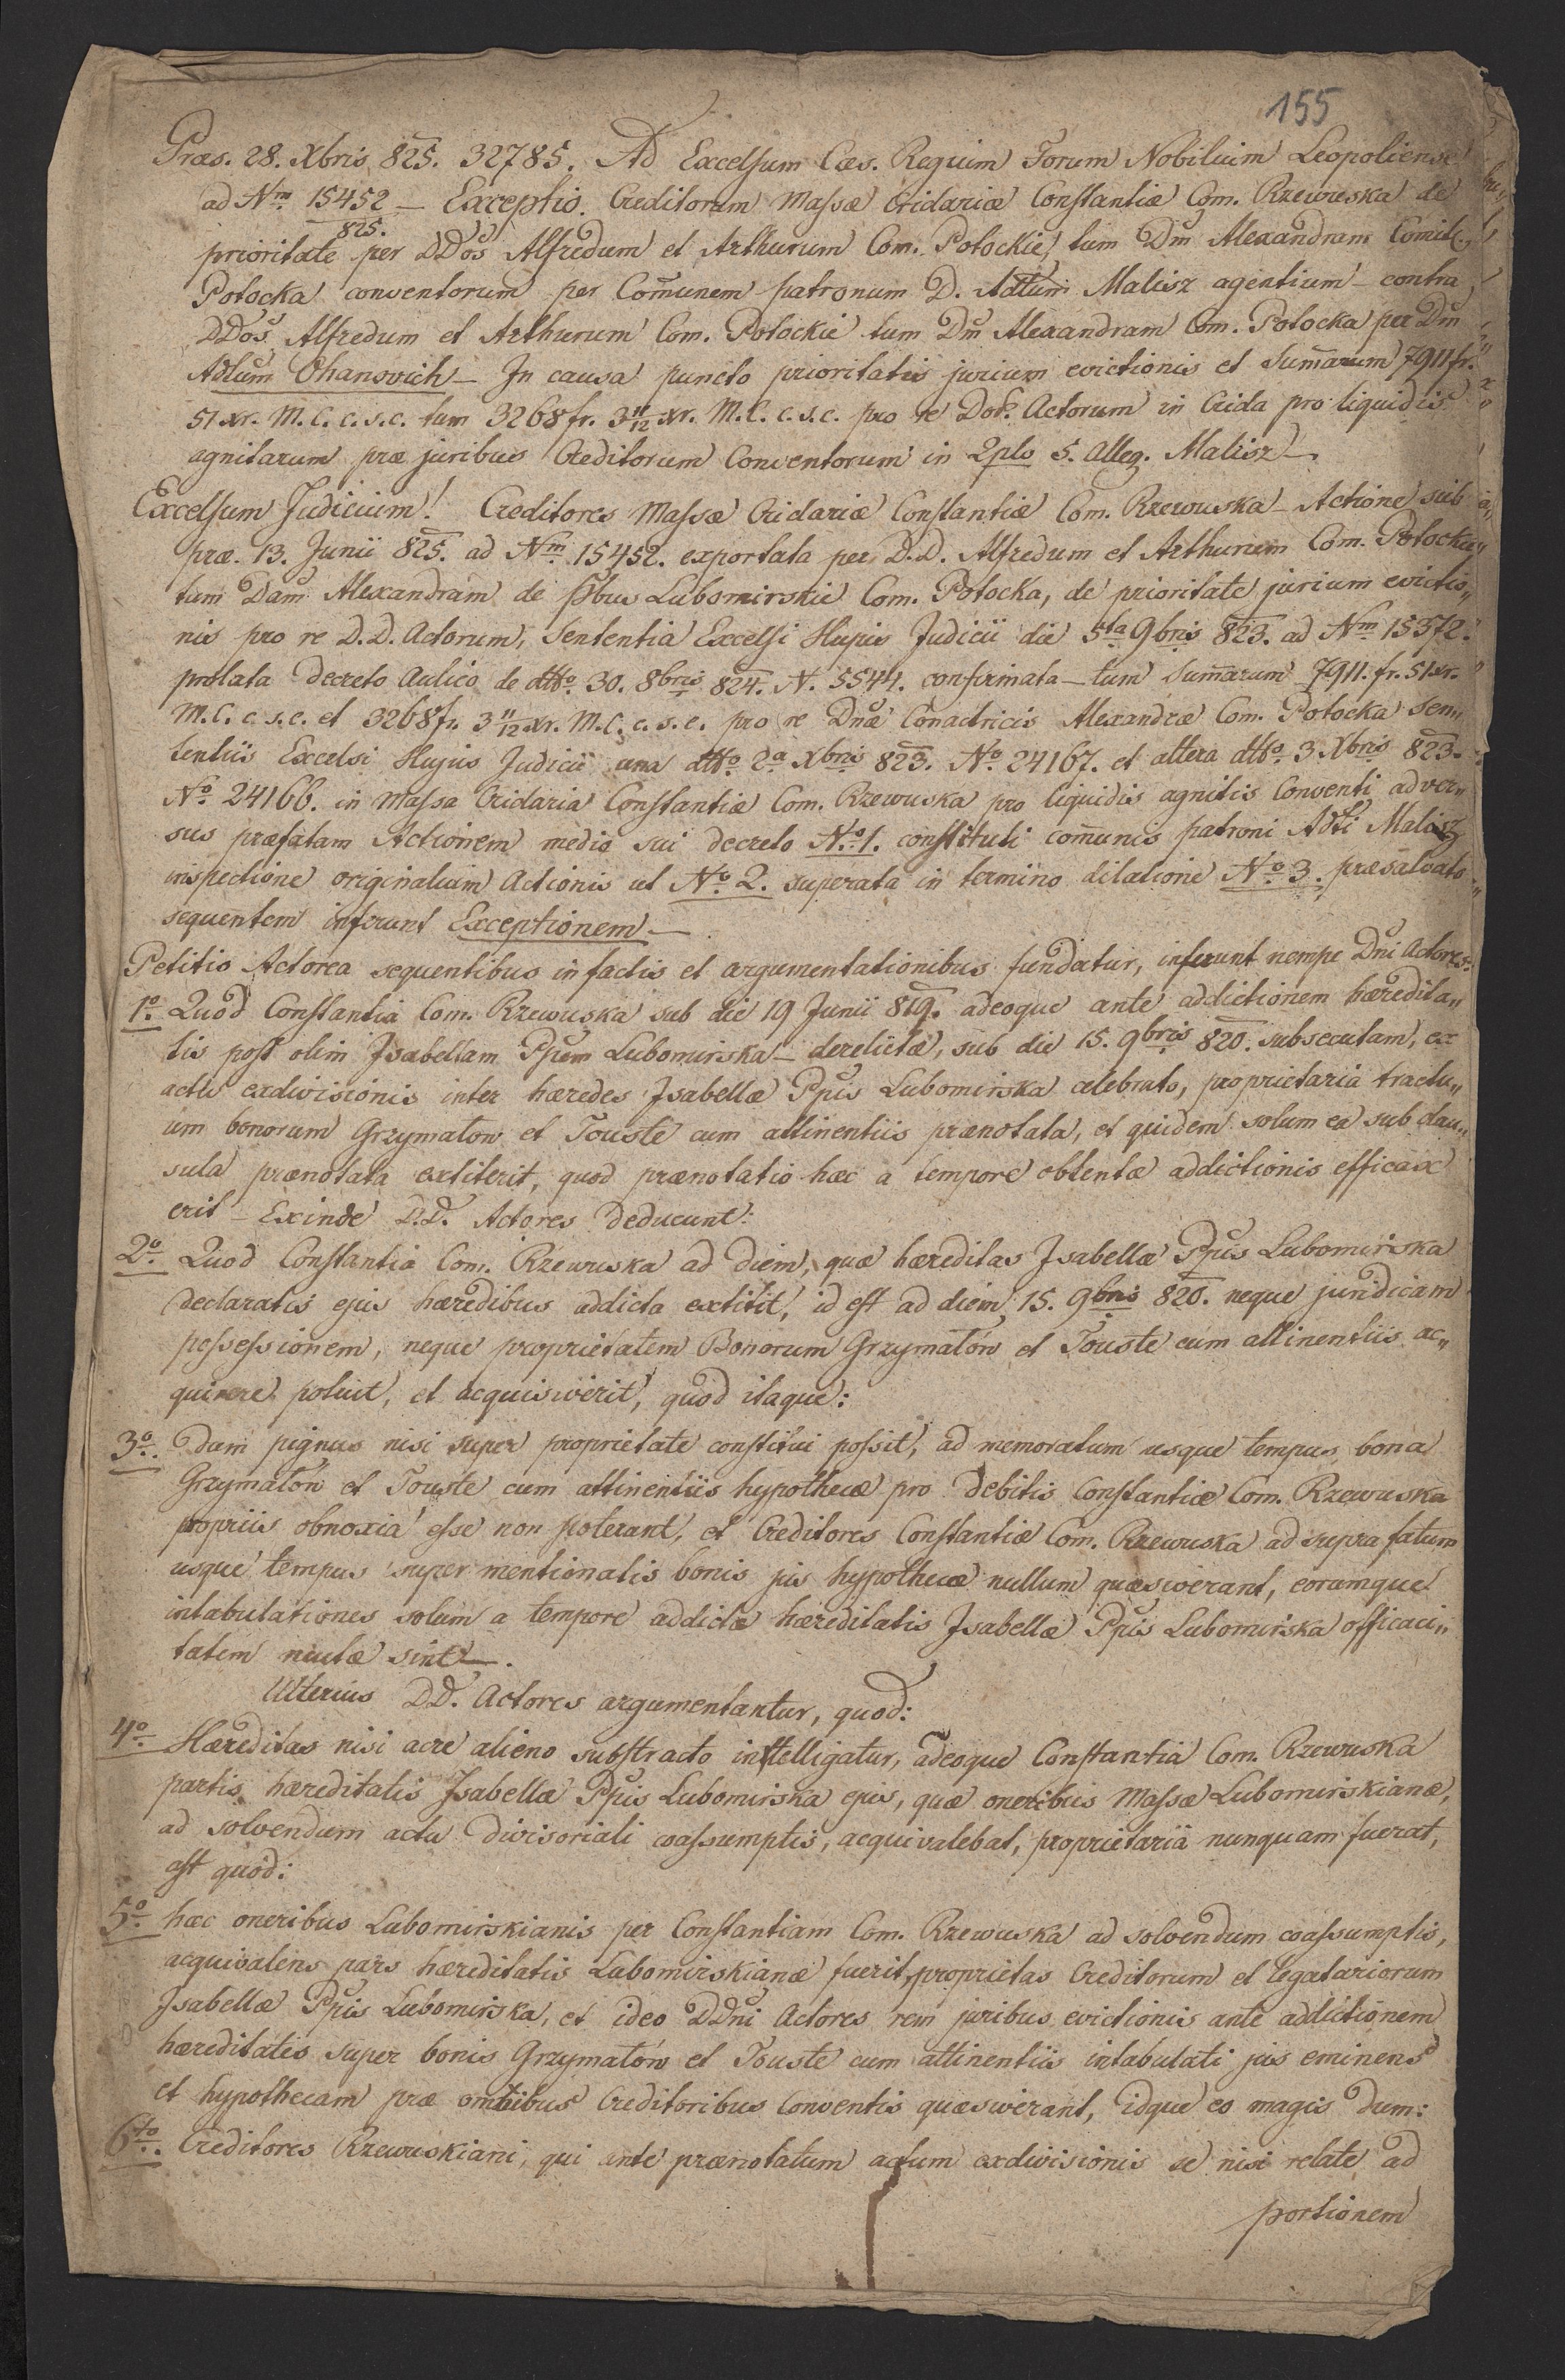 155
Præs. 28. Xbris 825. 32785. Ad Excelsum Cæs. Regium Forum Nobilium Leopoliense
ad Nm 15452 — Exceptio. Creditorum Massæ Cridariæ Constantiæ Com. Rzewuska de
825.
prioritate per DDos Alfredum et Arthurum Com. Potockie, tum Dm Alexandram Comit.
Potocka conventorum per Comunem patronum D. Adtum Malisz agentium — contra
DDos Alfredum et Arthurum Com. Potockie tum Dm Alexandram Com. Potocka per Dm
Adtum Ohanovich — In causa puncto prioritatis jurium evictionis et Sumarum 7911 fr.
51 xr. M. C. c. s. c. tum 3268 fr. 3 11/12 xr. M. C. c. s. c. pro re DoR. Actorum in Crida pro liquidis
agnitarum præ juribus Creditorum Conventorum in 2plo 5. Alleg. Malisz —.
Excelsum Judicium! Creditores Massæ Cridariæ Constantiæ Com. Rzewuska — Actione sub
præ. 13. Junii 825. ad Nm 15452. exportata per D.D. Alfredum et Arthurum Com. Potockie
tum Dam Alexandram de Ppbus Lubomirskie Com. Potocka, de prioritate jurium evictio„
nis pro re D.D. Actorum, Sententia Excelsi Hujus Judicii die 5ta 9bris 823. ad Nm 15372.
prolata Decreto Aulico de dtto 30. 8bris 824. N. 5544. confirmata — tum Sumarum 7911. fr. 51 xr.
M. C. c. s. c. et 3268 fr. 3 11/12 xr. M. C. c. s. c. pro re Dnæ Conactricis Alexandræ Com. Potocka Sen„
tentiis Excelsi Hujus Judicii una dtto 2a Xbris 823. No 24167. et altera dtto 3 Xbris 823.
No 24166. in Massa Cridaria Constantiæ Com. Rzewuska pro liquidis agnitis Conventi adver„
sus præfatam Actionem medio sui decreto No 1. constituti comunis patroni Adti Malisz
inspectione originalium Actionis ut No 2. superata in termino dilatione No 3. præsalvato
sequentem inferunt Exceptionem —.
Petitio Actorea sequentibus in factis et argumentationibus fundatur, inferunt nempe Dni Actores:
1o. Quod Constantia Com. Rzewuska sub die 19 Junii 819. adeoque ante addictionem hæredita„
tis post olim Isabellam Ppem Lubomirska — derelictæ, sub die 15. 9bris 820. subsecutam, ex
actu exdivisionis inter hæredes Isabellæ Ppis Lubomirska celebrato, proprietaria tractu„
um bonorum Grzymałow et Touste cum attinentiis prænotata, et quidem solum ea sub clau„
sula prænotata extiterit, quod prænotatio hæc a tempore obtentæ addictionis efficax
erit — Exinde D.D. Actores Deducunt:
2o. Quod Constantia Com. Rzewuska ad diem, quæ hæreditas Isabellæ Ppis Lubomirska
declaratis ejus hæredibus addicta extitit, id est ad diem 15. 9bris 820. neque juridicam
possessionem, neque proprietatem Bonorum Grzymałów et Touste cum attinentiis ac„
quirere potuit, et acquisiverit, quod itaque:
3o. Dum pignus nisi super proprietate constitui possit, ad memoratum usque tempus bona
Grzymałow et Touste cum attinentiis hypothecæ pro Debitis Constantiæ Com. Rzewuska
propriis obnoxia esse non poterant, et Creditores Constantiæ Com. Rzewuska ad supra fatum
usque tempus super mentionatis bonis jus hypothecæ nullum quæsiverant, eorumque
intabulationes solum a tempore addictæ hæreditatis Isabellæ Ppis Lubomirska efficaci„
tatem nactæ sint —.
Ulterius D.D. Actores argumentantur, quod:
4o. Hæreditas nisi aere alieno substracto intelligatur, adeoque Constantia Com. Rzewuska
partis hæreditatis Isabellæ Ppis Lubomirska ejus, quæ oneribus Massæ Lubomirskianæ,
ad solvendum actu divisoriali coassumptis, aequivalebat, proprietaria nunquam fuerat,
ast quod:
5o. hæc oneribus Lubomirskianis per Constantiam Com. Rzewuska ad solvendum coassumptis,
aequivalens pars hæreditatis Lubomirskianæ fuerit, proprietas Creditorum et legatariorum
Isabellæ Ppis Lubomirska, et ideo DDni Actores rem juribus evictionis ante addictionem
hæreditatis super bonis Grzymałów et Touste cum attinentiis intabulati jus eminens
et hypothecam præ omnibus Creditoribus Conventis quæsiverant, idque eo magis Dum:
6to. Creditores Rzewuskiani, qui ante prænotatum actum exdivisionis se nisi relate ad
portionem